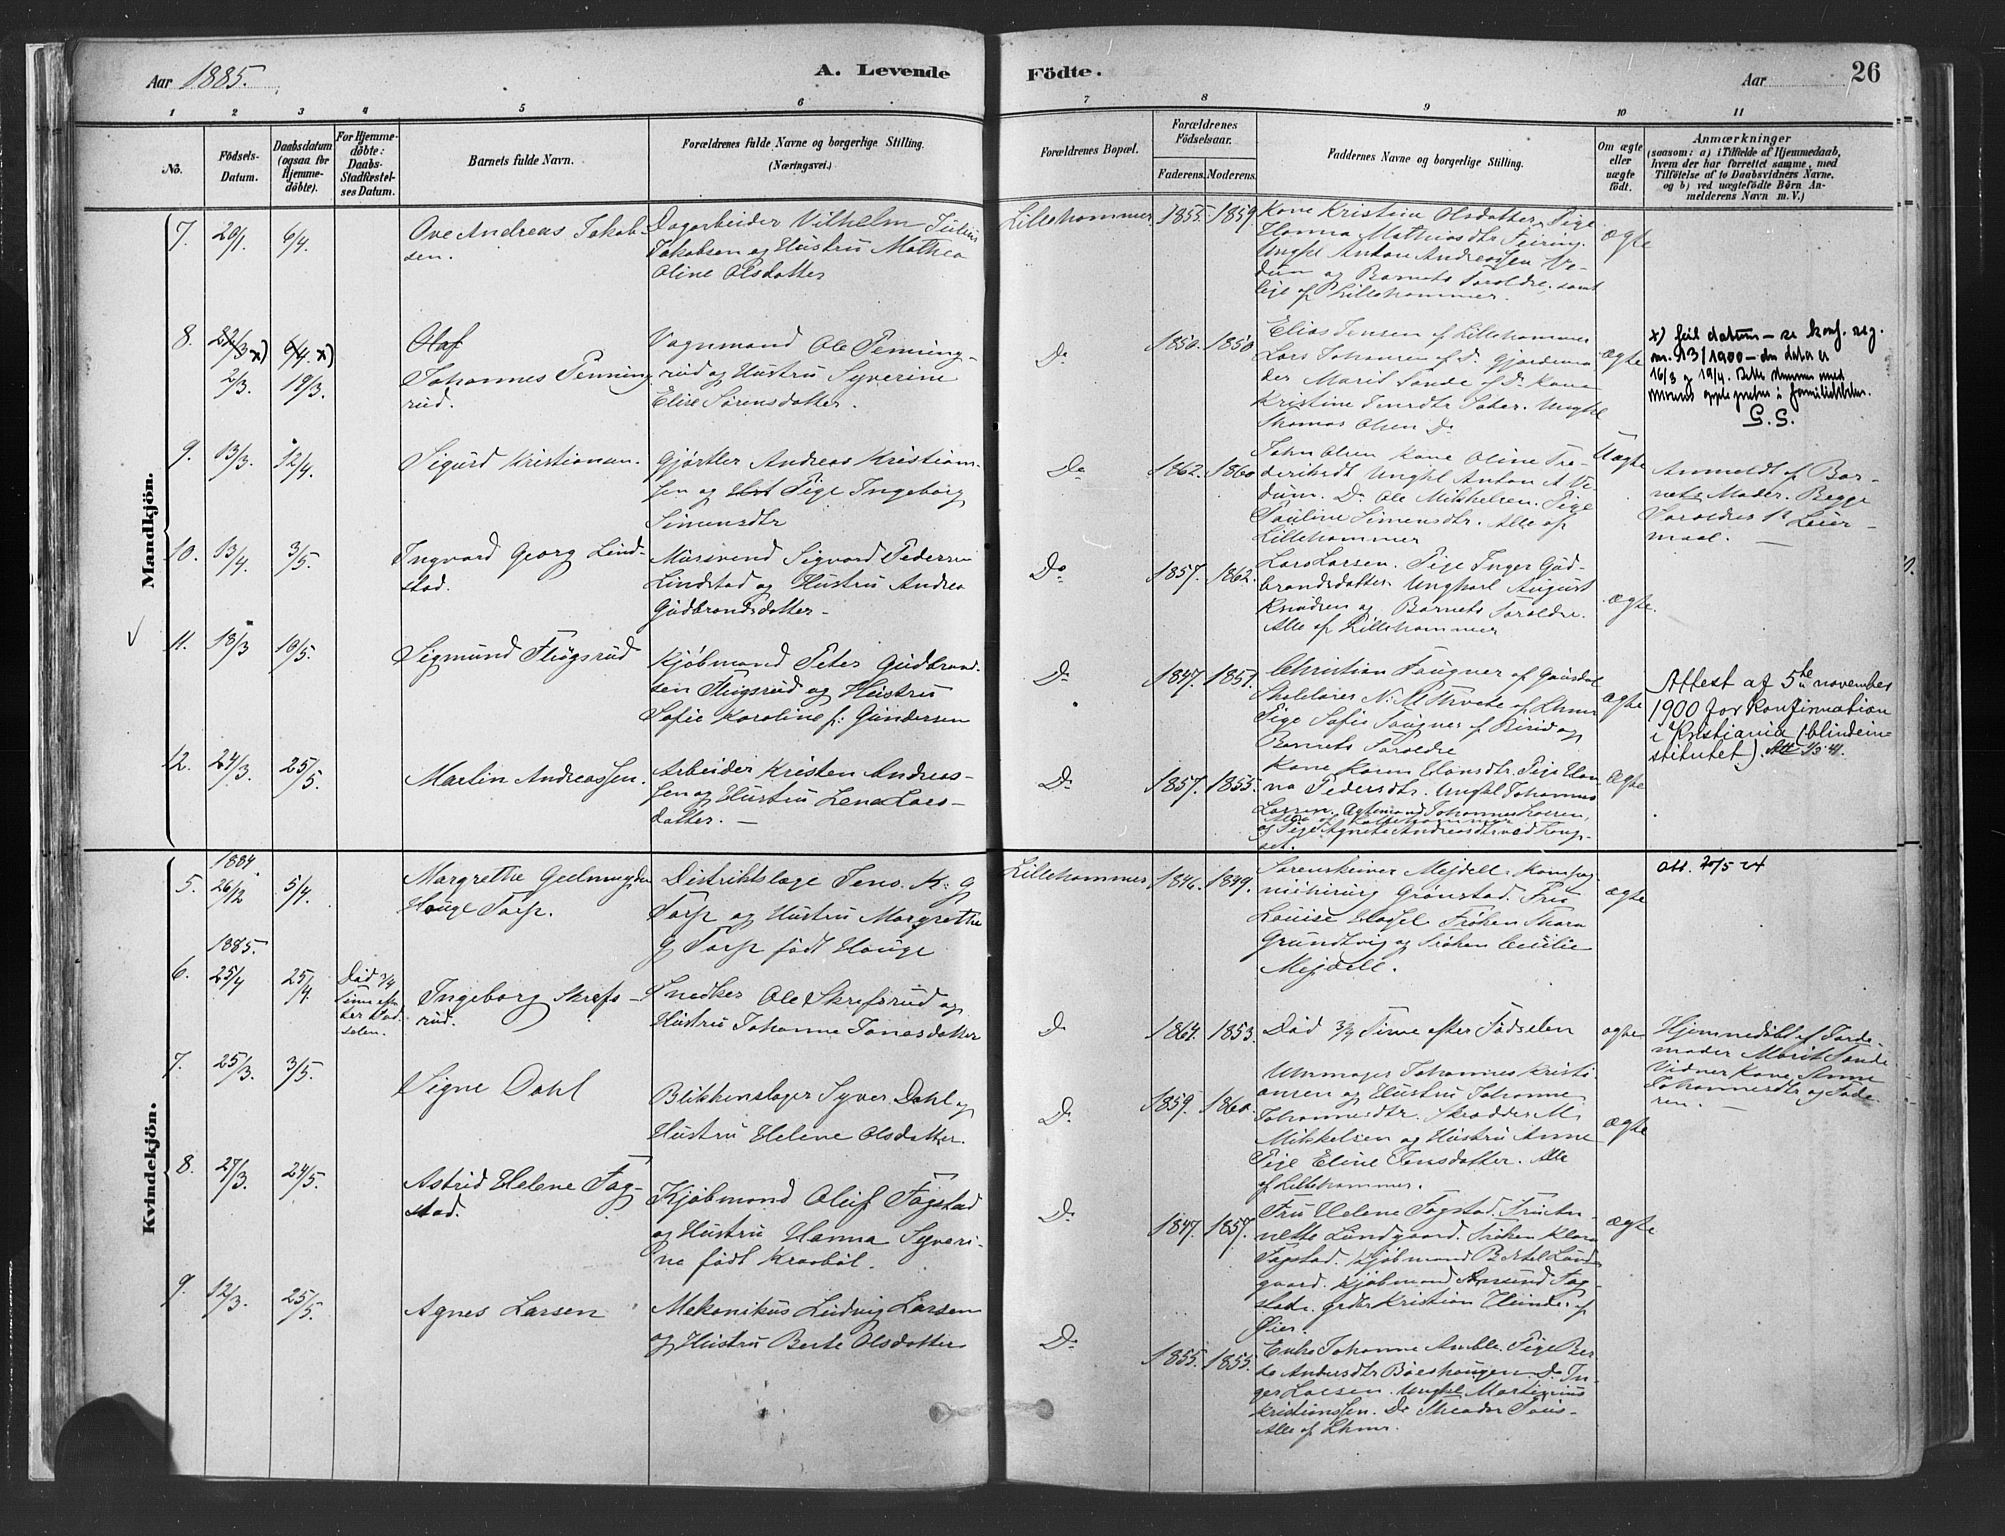 Aar 1885.
A. Levende
Födte.
Aar
26
1
2
3
4
5
6
7
8
9
10
11
No.
Födsels-
Datum.
Daabsdatum
(ogsaa for
Hjemme-
döbte).
For Hjemme-
döbte:
Daabs-
Stadfæstel-
ses Datum.
Barnets fulde Navn.
Forældrenes fulde Navne og borgerlige Stilling.
(Næringsvei.)
Forældrenes Bopæl.
Forældrenes
Födselsaar.
Faderens.
Moderens.
Faddernes Navne og borgerlige Stilling.
Om ægte
eller
uægte
födt.
Anmærkninger
(saasom: a) i Tilfælde af Hjemmedaab,
hvem der har forrettet samme, med
Tilföielse af to Daabsvidners Navne,
og b) ved uægtefödte Börn An-
melderens Navn m. V.)
Mandkjön.
7.
20/1.
6/4.
Ove Andreas Jakob-
sen.
Dagarbeider Vilhelm Julius
Jakobsen og Hustru Mathea
Oline Olsdatter
Lillehammer
1855.
1859.
Kone Kristine Olsdatter. Pige
Hanna Mathiasdtr Feiring.
Ungkl Anton Andreassen Ve-
dum og Barnets Foroldre. samt
lige af Lillehammer.
ægte
8.
22/3 x)
6/4. x)
2/3.
19/3.
Olaf
Johannes Penning
rud.
Vognmand Ole Penning-
rud og Hustru Syverine
Elise Sørensdatter.
Do
1850.
1850
Elias Jensen af Lillehammer
Lars Johansen af Do. Gjordemo
der Marit Sande af Do. Kone
Kristine Jensdtr Sater. Ungkl
Thomas Olsen Do
ægte
x) feil datum – se konf. reg.
nr. 13/1900 – der dater er
16/3 og 19/4. Dette stemmer med
morens opplysninger i familietabeller.
G. S.
9.
13/3.
12/4.
Sigurd Kristiansen.
Gjørtler Andreas Kristian-
sen og Hust Pige Ingeborg
Simensdtr
Do
1862.
1860
John Olsen Kone Oline Fre-
deriksdt Ungkl Anton A Ve-
dum. Do Ole Mikkelsen. Pige
Pauline Simensdtr. Alle af
Lillehammer
Uægte
Anmeldt af Bar-
nets Moder. Begge
Foroldres 1ste Leier-
maal.
10.
13/4.
3/5.
Ingvard Georg Lind-
stad.
Mursvend Sigvard Pedersen
Lindstad og Hustru Andrea
Gudbrandsdatter –
Do
1857.
1862.
Lars Larsen. Pige Inger Gud-
brandsdatter. Ungkarl August
Knudsen og Barnets Foroldre.
Alle af Lillehammer
ægte.
11.
18/3
10/5.
Sigmund Flugsrud
Kjøbmand Peter Gudbrand-
sen Flugsrud og Hustru
Sofie Karoline f: Gundersen
Do
1847.
1851.
Christian Faugner af Gausdal
Skolelærer N. M. Tvete af Lhmr
Pige Sofie Faugner af Biri og
Barnets Foroldre
ægte
Attest af 5te november
1900 for Konfirmation
i Kristiania (blindein-
stitutet).
12.
24/3.
25/5.
Martin Andreassen.
Arbeider Kristen Andreas-
sen og Hustru Lena Lars-
datter. –
Do
1857.
1855.
Kone Karen Hansdtr. Pige Han
na Pedersdtr. Ungkl Johannes
Larsen.
ægte
Kvindekjön.
5.
1884.
26/12
5/4.
Margrethe Geelmuyden
Hauge Torp.
Distriktslæge Jens. K. G
Torp og Hustru Margrethe
G Torp født Hauge
Lillehammer
1846.
1849.
Sorenskriver Mejdell. Kompag-
nichirurg Grønstad. Fru
Louise Hassel. Frøken Thora
Grundtvig og Frøken Cecilie
Mejdell.
ægte
Att. 20/5 24
1885.
6.
25/4
25/4.
Død 3/4
Time ef-
ter Fød-
selen.
Ingeborg Skrefs-
rud.
Snedker Ole Skrefsrud og
Hustru Johanne Jonasdatter
Do
1864.
1853.
Død 3/4 Time efter Fødselen
ægte
Hjemmedøbt af Jorde-
moder Marit Sande
Vidner Kone Anne
Johannesdtr og Fade-
ren. –
7.
25/3.
3/5.
Signe Dahl
Blikkenslager Syver Dahl og
Hustru Helene Olsdatter.
Do
1859.
1860.
Uhrmager Johannes Kristi-
ansen og Hustru Johanne
Johannesdtr. Skrædder M.
Mikkelsen og Hustru Anne
Pige Eline Jensdatter. Alle
af Lillehammer.
ægte
8.
27/3.
24/5.
Astrid Helene Fag-
stad.
Kjøbmand Oluf Fagstad
og Hustru Hanna Syveri-
ne født Kraabøl.
Do
1847.
1857.
Fru Helene Fagstad. Fru An-
nette Lundgaard. Frøken Klara
Fagstad. Kjøbmand Bertel Lund
gaard. Kjøbmand Amund Fag-
stad. Grdbr Kristian Hunder af
Øier.
ægte
9.
12/3.
25/5.
Agnes Larsen
Mekanikus Ludvig Larsen
og Hustru Berte Olsdatter
Do
1855.
1855.
Enke Johanne Amble. Pige Ber-
te Andersdtr Bøeshaugen. Do In-
ger Larsen. Ungkl Martinius
Kristiansen. Do Theodor
Alle af Lhmr.